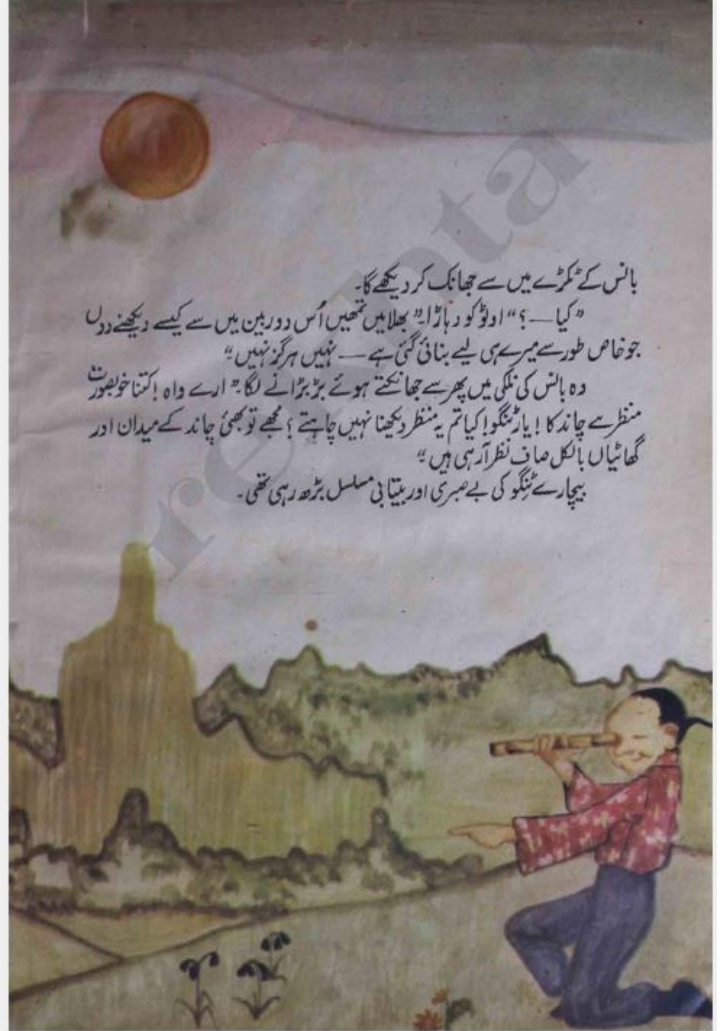 بانس کے ٹکڑے میں سے جھانک کر دیکھے گا۔
"کیا — ؟" اولؤ کو دہاڑا۔ "بھلا میں تمھیں اُس دوربین میں سے کیسے دیکھنے دوں
جو خاص طور سے میرے ہی لیے بنائی گئی ہے — نہیں ہرگز نہیں"
وہ بانس کی نلکی میں پھر سے جھانکتے ہوئے بڑبڑانے لگا۔ "ارے واہ! کتنا خوبصورت
منظر ہے چاند کا! یار ٹنگو! کیا تم یہ منظر دیکھنا نہیں چاہتے؟ مجھے تو بھئی چاند کے میدان اور
گھاٹیاں بالکل صاف نظر آرہی ہیں"
بیچارے ٹنگو کی بے صبری اور بیتابی مسلسل بڑھ رہی تھی۔